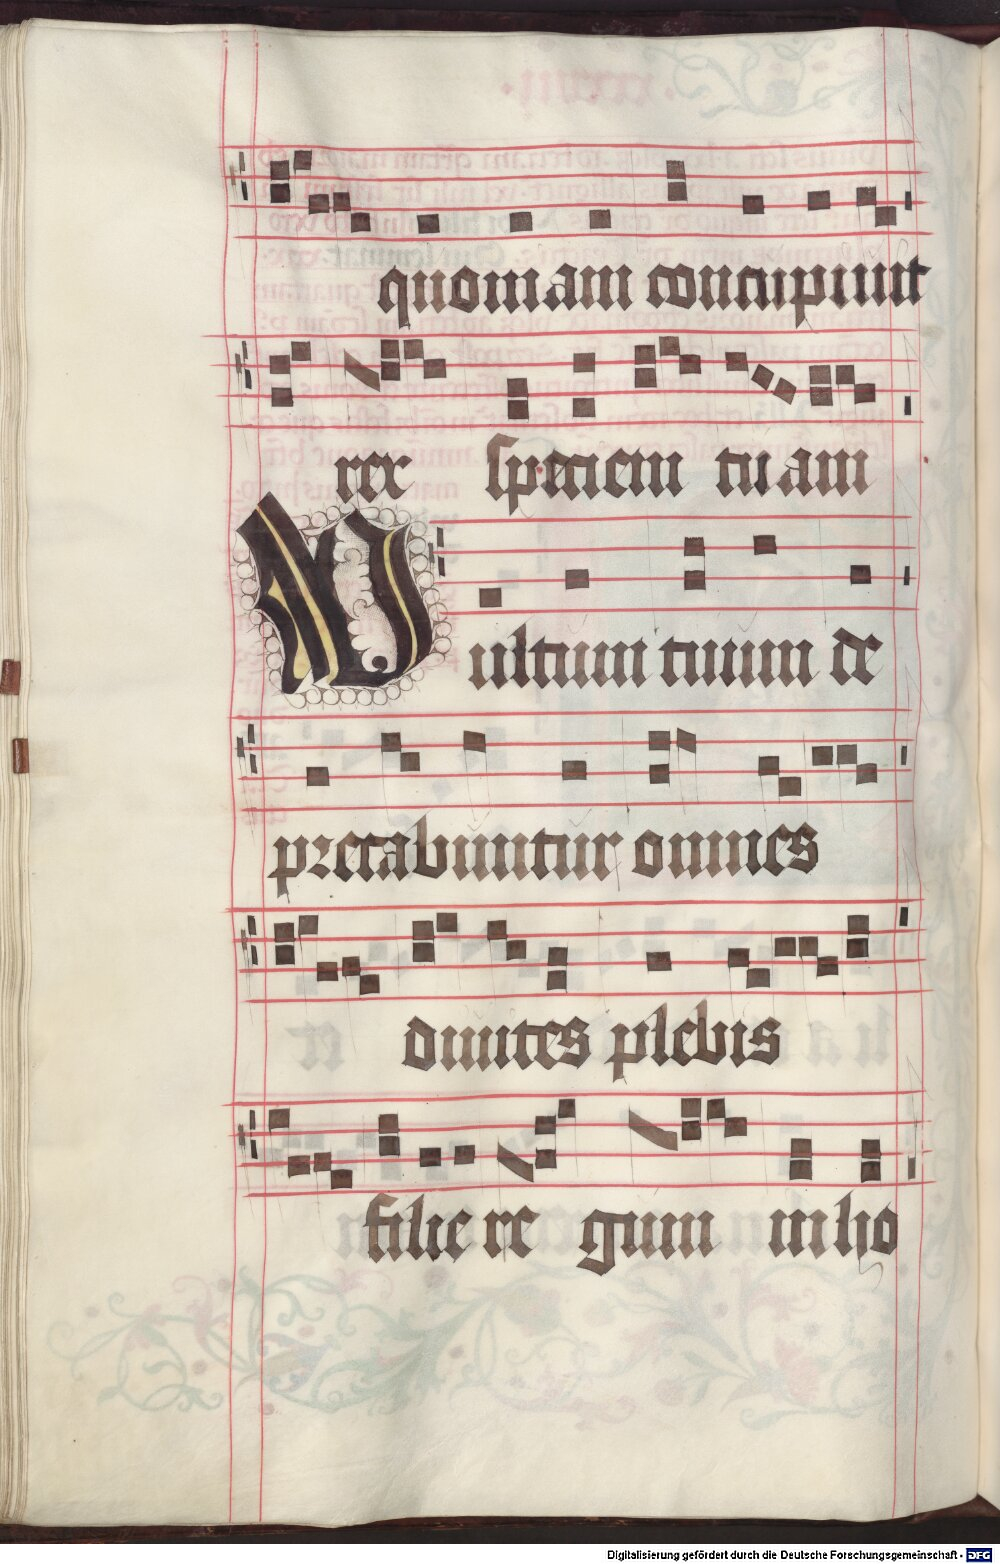 quoniam concupiuit
rex speciem tuam
Vultum tuum de
precabuntur omnes
diuites plebis
filie regum in ho
Digitalisierung gefördert durch die Deutsche Forschungsgemeinschaft - DFG